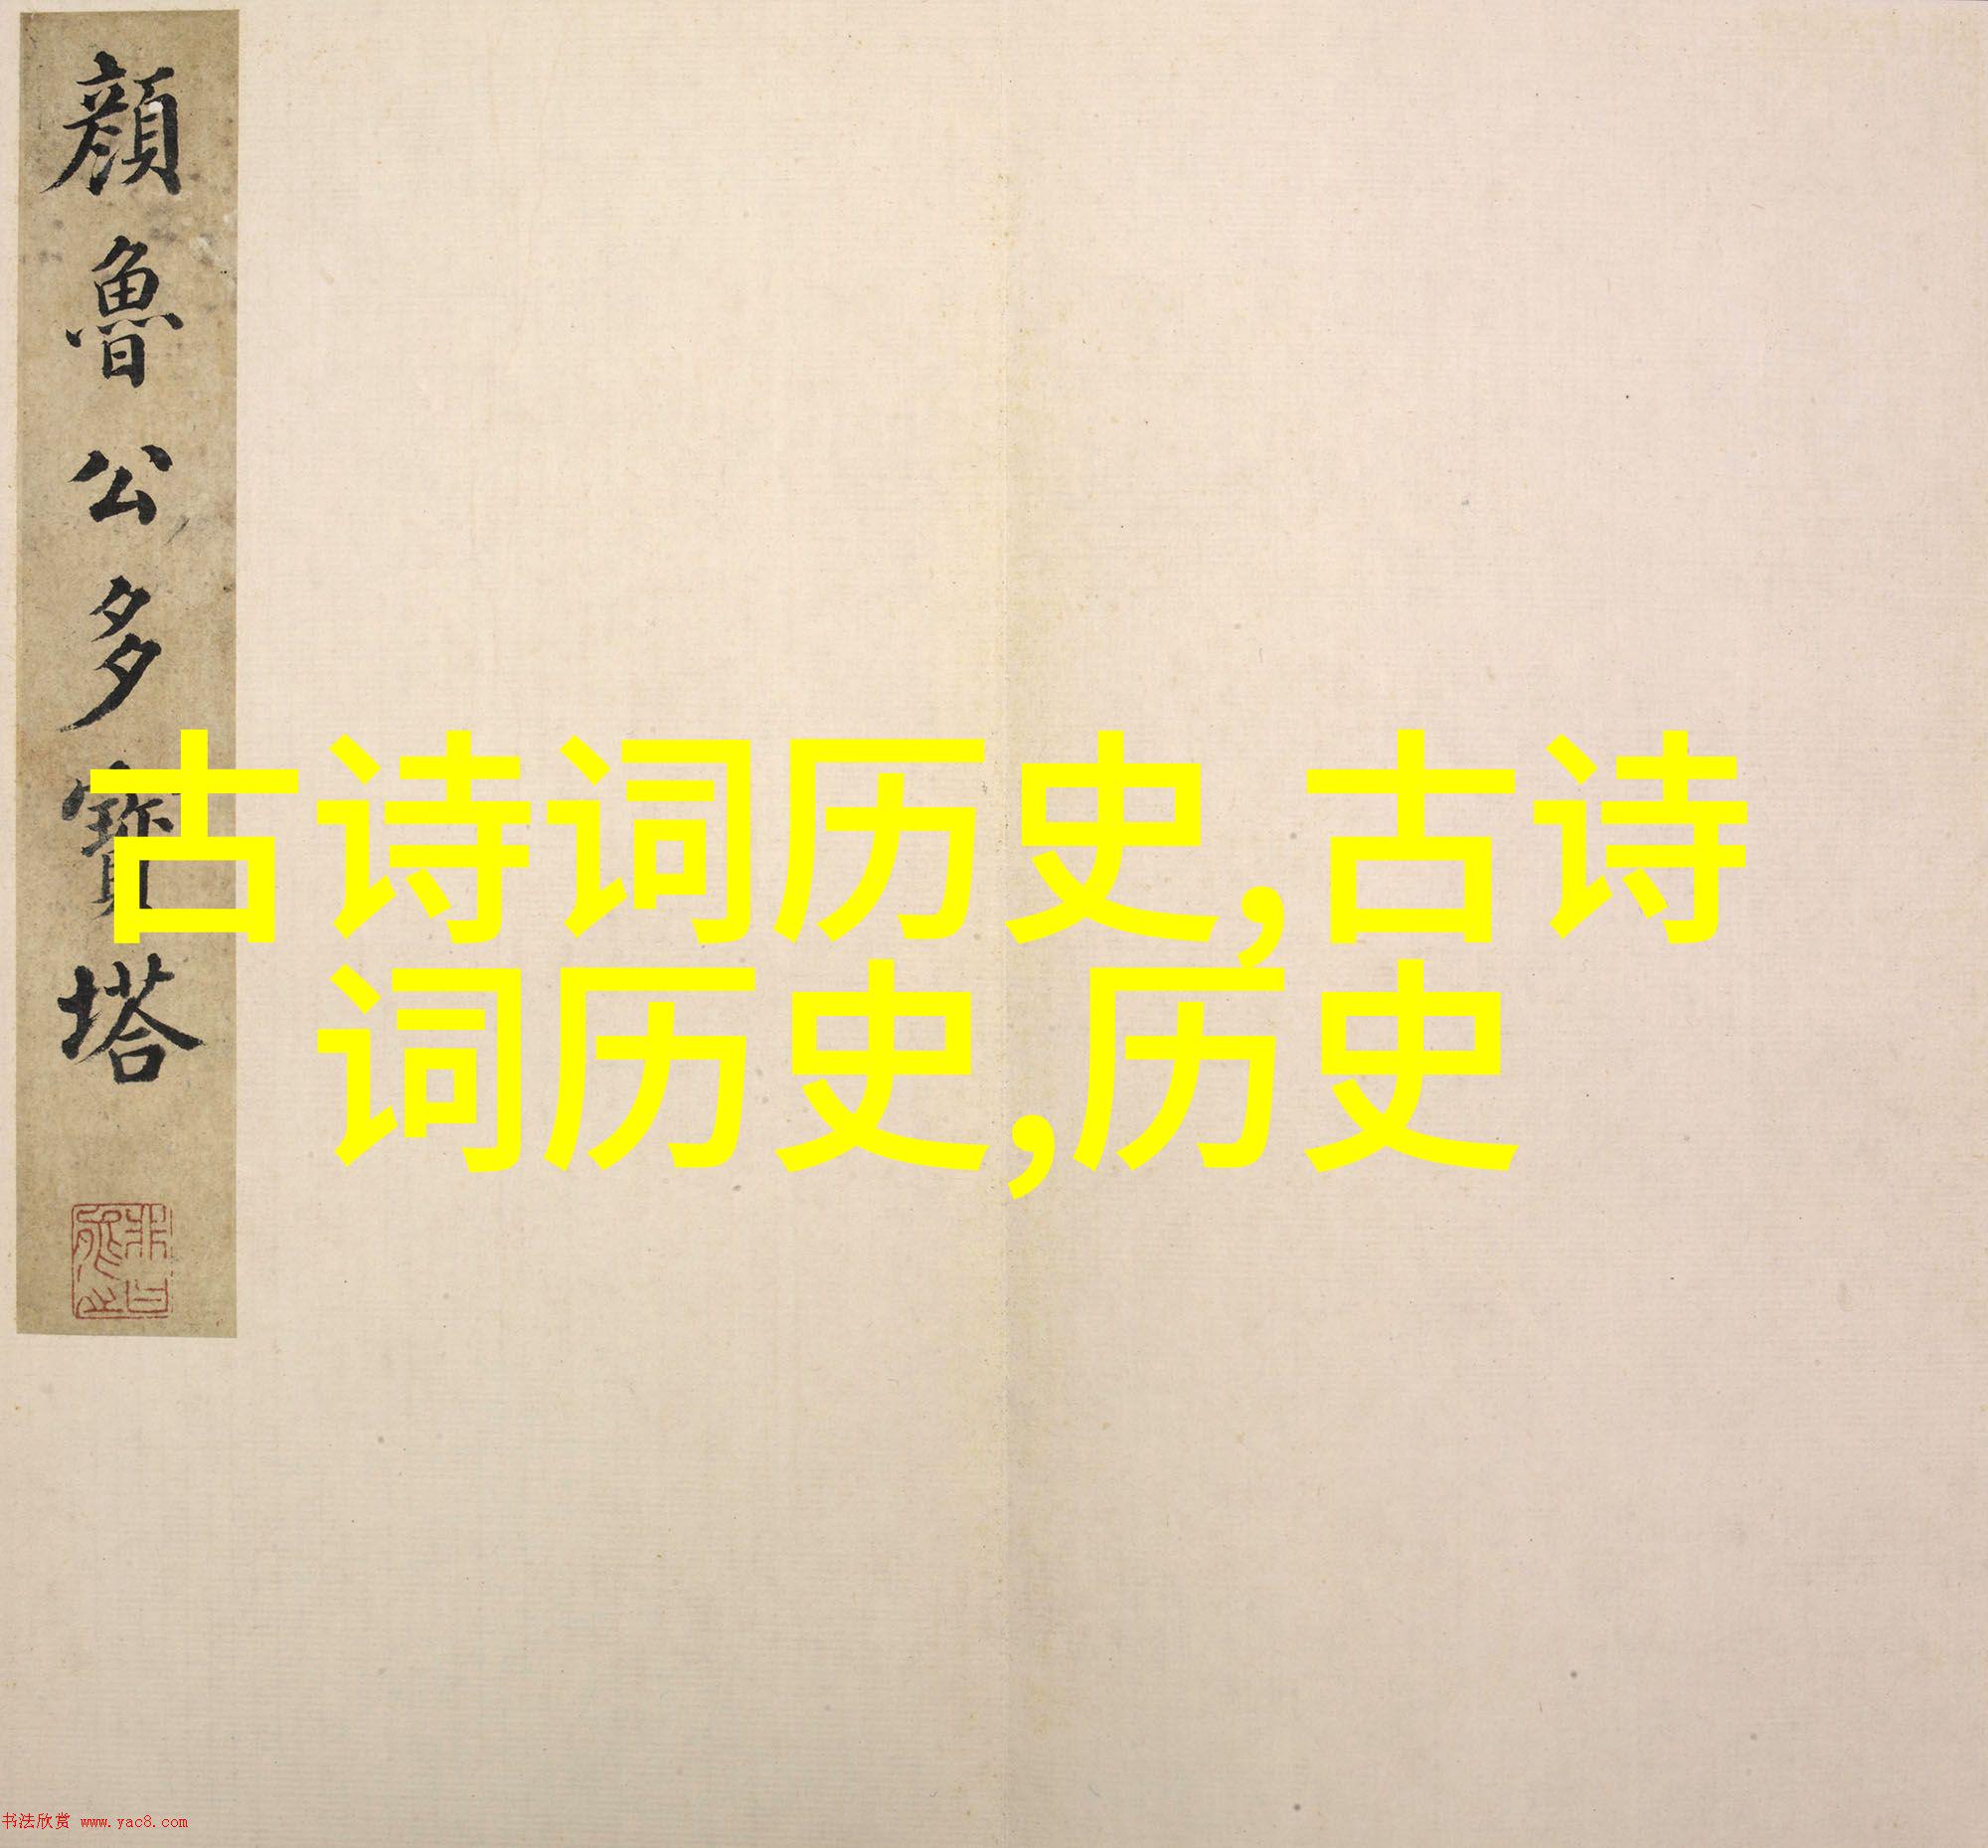 顔魯公多寶塔
古诗词历史,古诗
词历史,历史
书法欣赏 www.yac8.com